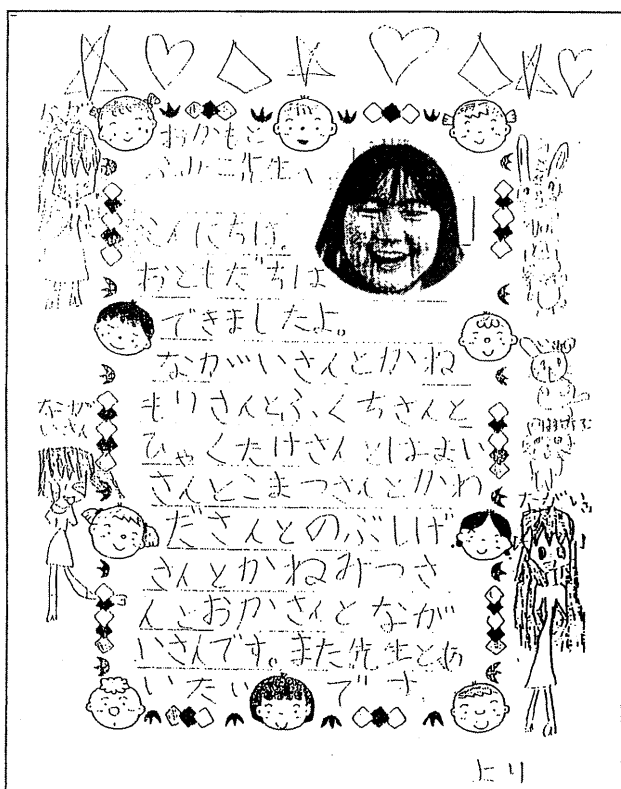 おかもと
先生へ
こんにちは。
おともだちは
できましたよ。
ながいさんとかね
もりさんとふくちさんと
ひゃくたけさんとはよい
さんとこまつさんとかわ
ださんとのぶしげ
さんとかねみつさ
んとおかさんとなが
いさんです。また先生とあ
いたいです。
より
なが
いさん